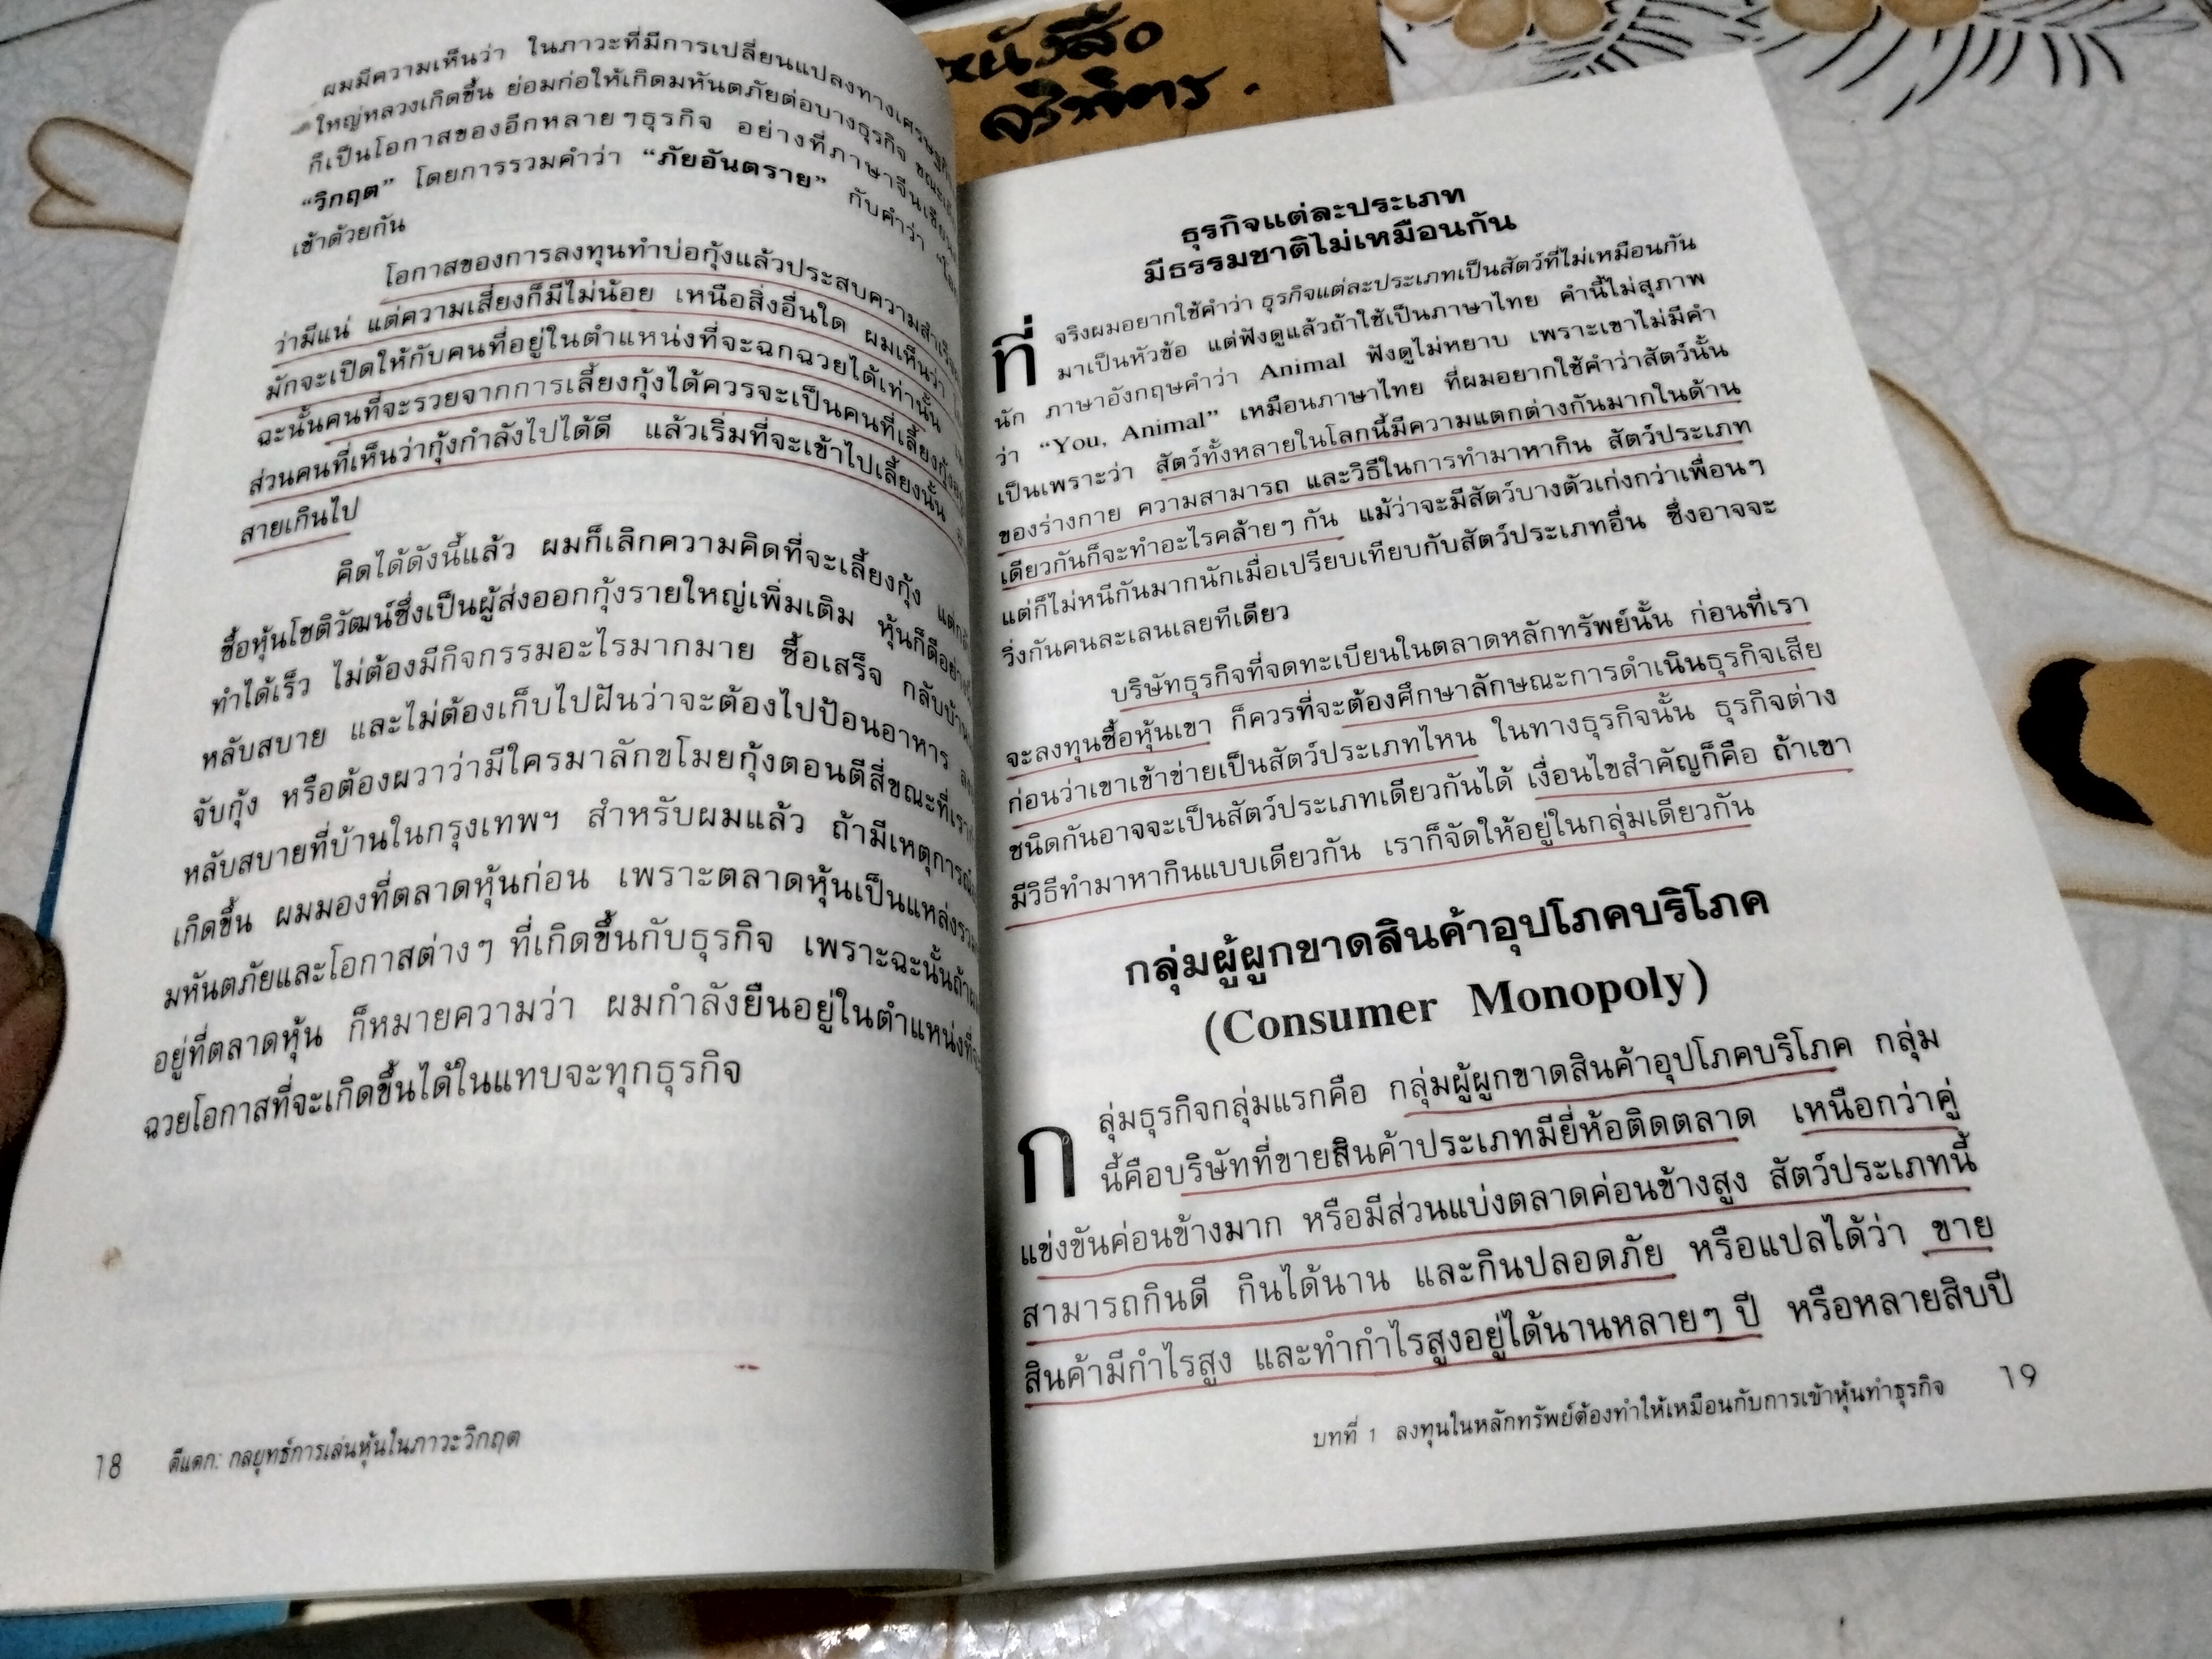 หนังสือ
จริพิกร.
ผมมีความเห็นว่า ในภาวะที่มีการเปลี่ยนแปลงทางเศรษฐกิจ
ใหญ่หลวงเกิดขึ้น ย่อมก่อให้เกิดมหันตภัยต่อบางธุรกิจ
ก็เป็นโอกาสของอีกหลายๆธุรกิจ อย่างที่ภาษาจีนเขียน
“วิกฤต” โดยการรวมคำว่า “ภัยอันตราย” กับคำว่า
เข้าด้วยกัน
โอกาสของการลงทุนทำบ่อกุ้งแล้วประสบความสำเร็จ
ว่ามีแน่ แต่ความเสี่ยงก็มีไม่น้อย เหนือสิ่งอื่นใด ผมเห็นว่า
มักจะเปิดให้กับคนที่อยู่ในตำแหน่งที่จะฉกฉวยได้เท่านั้น
ฉะนั้นคนที่จะรวยจากการเลี้ยงกุ้งได้ควรจะเป็นคนที่เลี้ยงกุ้ง
ส่วนคนที่เห็นว่ากุ้งกำลังไปได้ดี แล้วเริ่มที่จะเข้าไปเลี้ยงนั้น
สายเกินไป
คิดได้ดังนี้แล้ว ผมก็เลิกความคิดที่จะเลี้ยงกุ้ง
ซื้อหุ้นโชติวัฒน์ซึ่งเป็นผู้ส่งออกกุ้งรายใหญ่เพิ่มเติม หุ้นก็ดีอย่าง
ทำได้เร็ว ไม่ต้องมีกิจกรรมอะไรมากมาย ซื้อเสร็จ กลับบ้าน
หลับสบาย และไม่ต้องเก็บไปฝันว่าจะต้องไปป้อนอาหาร
จับกุ้ง หรือต้องผวาว่ามีใครมาลักขโมยกุ้งตอนตีสี่ขณะที่เรา
หลับสบายที่บ้านในกรุงเทพฯ สำหรับผมแล้ว ถ้ามีเหตุการณ์
เกิดขึ้น ผมมองที่ตลาดหุ้นก่อน เพราะตลาดหุ้นเป็นแหล่งรวม
มหันตภัยและโอกาสต่างๆ ที่เกิดขึ้นกับธุรกิจ เพราะฉะนั้นถ้า
อยู่ที่ตลาดหุ้น ก็หมายความว่า ผมกำลังยืนอยู่ในตำแหน่งที่
ฉวยโอกาสที่จะเกิดขึ้นได้ในแทบจะทุกธุรกิจ
18 ตีแตก: กลยุทธ์การเล่นหุ้นในภาวะวิกฤต
ธุรกิจแต่ละประเภท
มีธรรมชาติไม่เหมือนกัน
ที่จริงผมอยากใช้คำว่า ธุรกิจแต่ละประเภทเป็นสัตว์ที่ไม่เหมือนกัน
มาเป็นหัวข้อ แต่ฟังดูแล้วถ้าใช้เป็นภาษาไทย คำนี้ไม่สุภาพ
นัก ภาษาอังกฤษคำว่า Animal ฟังดูไม่หยาบ เพราะเขาไม่มีคำ
ว่า “You, Animal” เหมือนภาษาไทย ที่ผมอยากใช้คำว่าสัตว์นั้น
เป็นเพราะว่า สัตว์ทั้งหลายในโลกนี้มีความแตกต่างกันมากในด้าน
ของร่างกาย ความสามารถ และวิธีในการทำมาหากิน สัตว์ประเภท
เดียวกันก็จะทำอะไรคล้ายๆ กัน แม้ว่าจะมีสัตว์บางตัวเก่งกว่าเพื่อนๆ
แต่ก็ไม่หนีกันมากนักเมื่อเปรียบเทียบกับสัตว์ประเภทอื่น ซึ่งอาจจะ
วิ่งกันคนละเลนเลยทีเดียว
บริษัทธุรกิจที่จดทะเบียนในตลาดหลักทรัพย์นั้น ก่อนที่เรา
จะลงทุนซื้อหุ้นเขา ก็ควรที่จะต้องศึกษาลักษณะการดำเนินธุรกิจเสีย
ก่อนว่าเขาเข้าข่ายเป็นสัตว์ประเภทไหน ในทางธุรกิจนั้น ธุรกิจต่าง
ชนิดกันอาจจะเป็นสัตว์ประเภทเดียวกันได้ เงื่อนไขสำคัญก็คือ ถ้าเขา
มีวิธีทำมาหากินแบบเดียวกัน เราก็จัดให้อยู่ในกลุ่มเดียวกัน
กลุ่มผู้ผูกขาดสินค้าอุปโภคบริโภค
(Consumer Monopoly)
กลุ่มธุรกิจกลุ่มแรกคือ กลุ่มผู้ผูกขาดสินค้าอุปโภคบริโภค กลุ่ม
นี้คือบริษัทที่ขายสินค้าประเภทมียี่ห้อติดตลาด เหนือกว่าคู่
แข่งขันค่อนข้างมาก หรือมีส่วนแบ่งตลาดค่อนข้างสูง สัตว์ประเภทนี้
สามารถกินดี กินได้นาน และกินปลอดภัย หรือแปลได้ว่า ขาย
สินค้ามีกำไรสูง และทำกำไรสูงอยู่ได้นานหลายๆ ปี หรือหลายสิบปี
บทที่ 1 ลงทุนในหลักทรัพย์ต้องทำให้เหมือนกับการเข้าหุ้นทำธุรกิจ 19